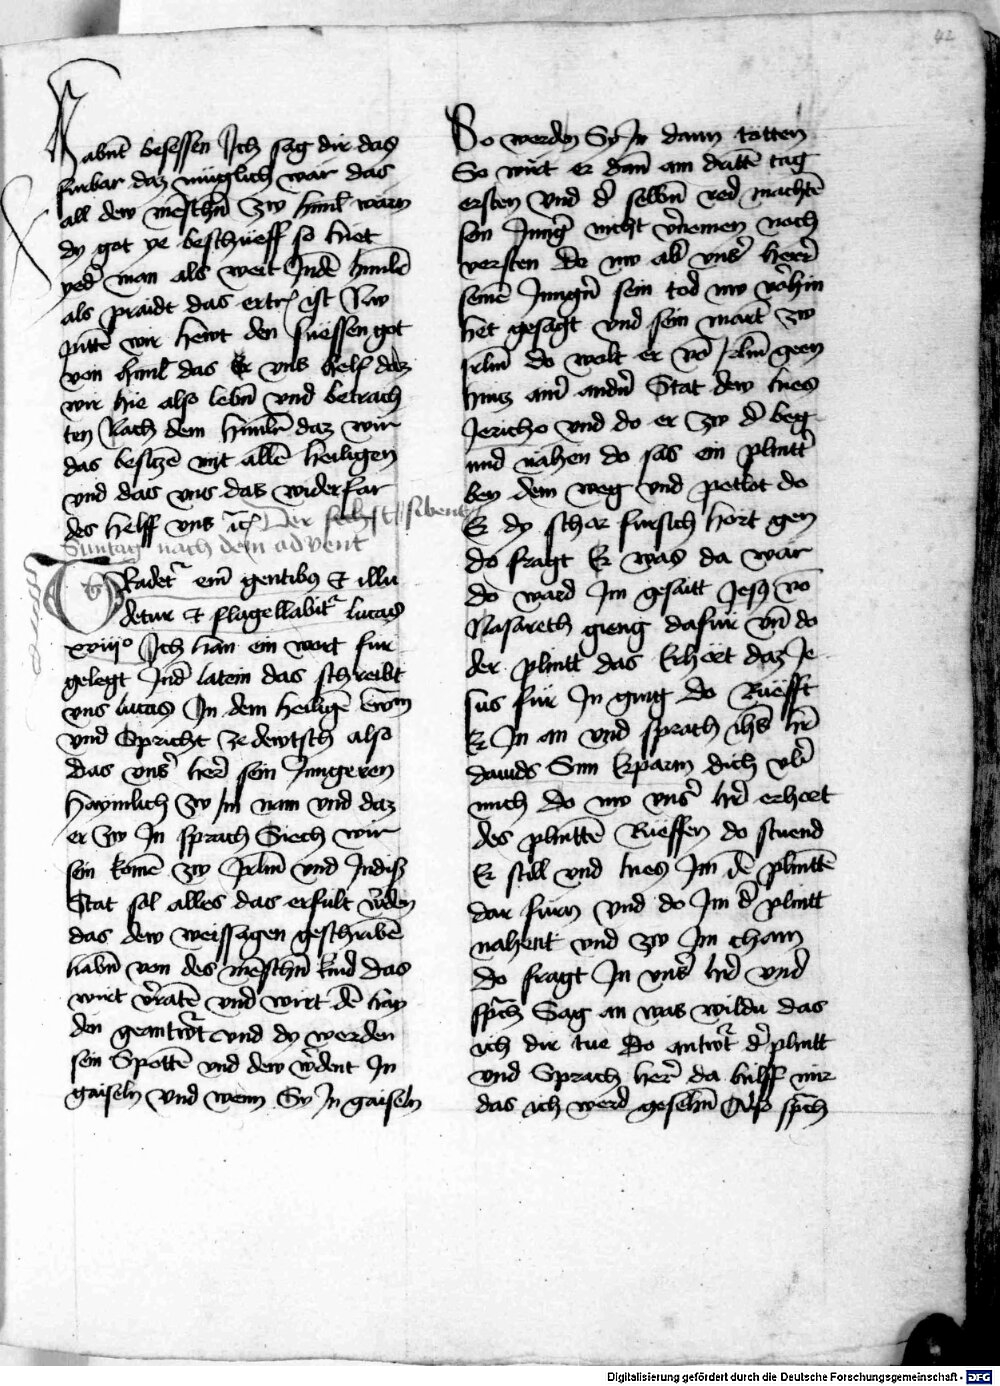 42
habnt besessen Ich sag dir das
furbar daz müglich wär das
all dew menschn zw himl wärn
dy got ye beschüeff so hiet
yed man als weit Inde himeln
als praidt das ertrich ist Nw
pitte wir hewt den süessen got
von himl das Er vns helf daz
wir hie also lebn vnd betrach
ten Nach dem himln daz wir
das besitzn mit alln heiligen
vnd das vns das widerfar
des helff vns ich Der sechst sibent
Suntag nach dem advent
Tradetr enim gentibus et illu
detur et flagellabitr lucas
xviijo Ich han ein wort für
gelegt Inde latein das schreibt
vns lucas In dem heiligen Ewm
vnd Spricht ze dewtsch also
das vnsr her sein Jungeren
haymlich zw im nam vnd daz
er zw In sprach Siech wir
sein komen zw Jrlm vnd In diser
Stat sol alles das erfult wden
das dew weissagen geschriben
habn von des menschn kind das
wirt vraten vnd wirt den hay
den geantwt vnd dy werden
sein Spotten vnd dew wdent In
gaiseln vnd wenn Sy In gaiseln
So werden Sy In dann tötten
So wirt er dan am dritten tag
ersten vnd d selbn red machte
sein Jungr nicht vnomen noch
versten do nw ab vnsr herr
seine Jungrn sein tod nw vorhin
het gesagt vnd sein martr zw
jrlm do wolt er von jrlm geen
hintz ainr andn Stat dew hies
Jericho vnd do er zw d beg
und nahen do sas ein plintr
ben dem weg vnd petlot do
Er dy schar fursich hört gen
do fragt Er was da wär
do ward Im gesaitt Jesus von
Nasareth gieng dafür vn do
der plintt das Erhört daz Je
sus für In ging do Rüefft
Er In an vnd sprach ihs hr
dauids Sun Erparm dich vbr
mich do nw vnsr hr erhort
des plintten Rüeffen do stuend
Er still vnd hies Im den plintten
dar fürn vnd do Im d plintt
nahent vnd zw Im cham
do fragt In vnsr hr vnd
sprch Sag an was wildu das
ich dir tue Do antwt d plintt
vnd Sprach herr da hilff mir
das ich werd gesehn Also spch
Digitalisierung gefördert durch die Deutsche Forschungsgemeinschaft - DFG